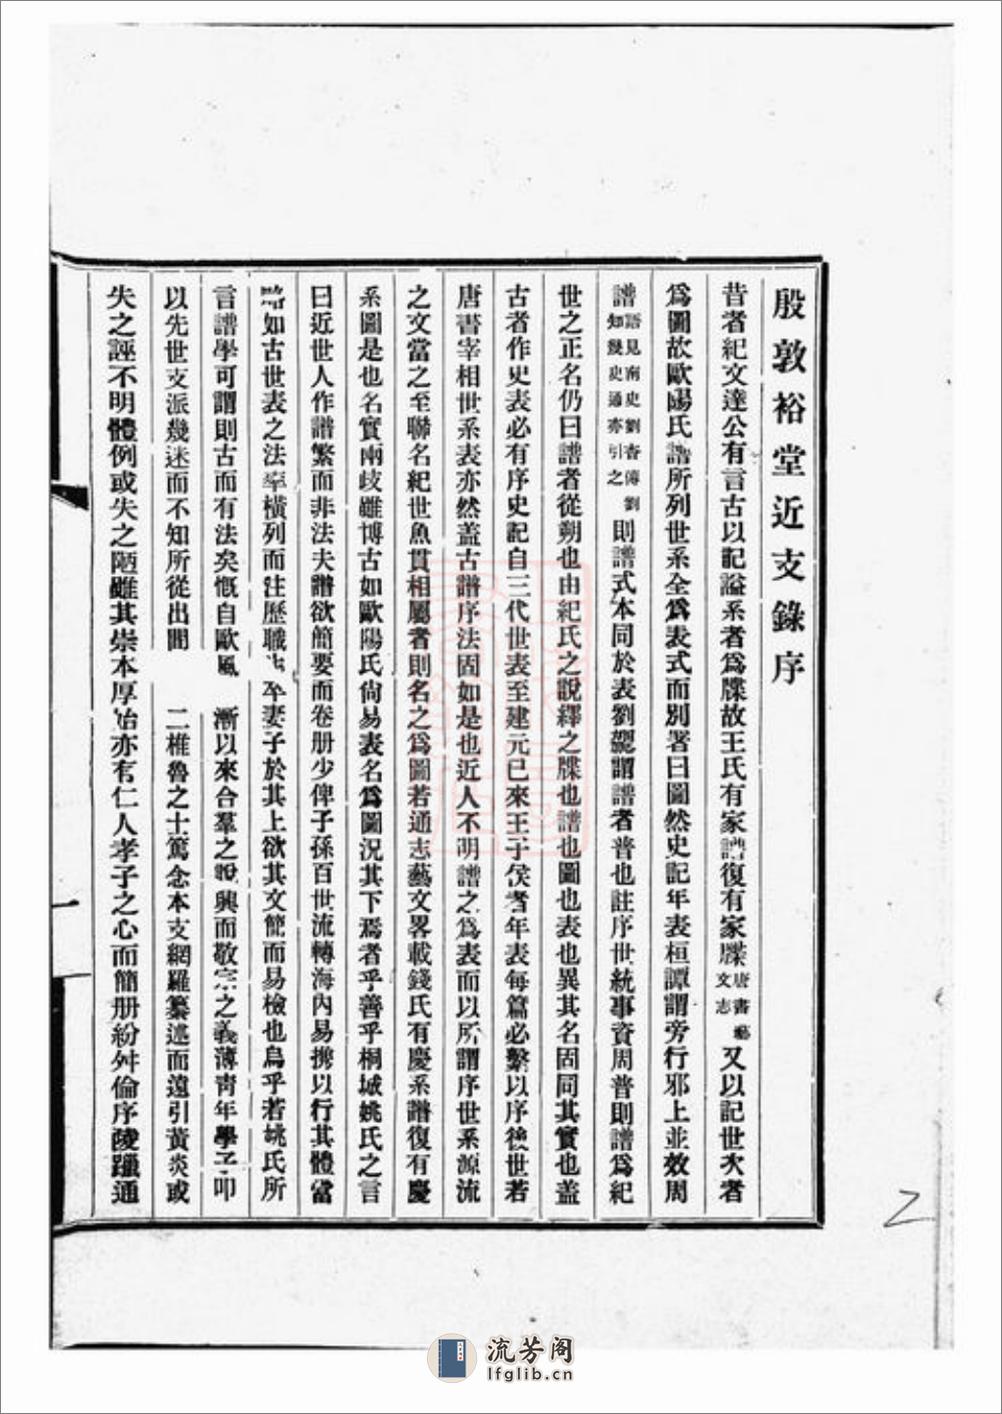 殷敦裕堂近支錄序
昔者紀文達公有言古以記謚系者爲牒故王氏有家譜復有家牒唐書藝文志又以記世次者
爲圖故歐陽氏譜所列世系全爲表式而別署曰圖然史記年表桓譚謂旁行邪上並效周
譜語見南史劉杳傳劉知幾史通亦引之則譜式本同於表劉勰謂譜者普也註序世統事資周普則譜爲紀
世之正名仍曰譜者從朔也由紀氏之說繹之牒也譜也圖也表也異其名固同其實也蓋
古者作史表必有序史記自三代世表至建元已來王子侯者年表每篇必繫以序後世若
唐書宰相世系表亦然蓋古譜序法固如是也近人不明譜之爲表而以所謂序世系源流
之文當之至聯名紀世魚貫相屬者則名之爲圖若通志藝文畧載錢氏有慶系譜復有慶
系圖是也名實兩歧雖博古如歐陽氏尙易表名爲圖況其下焉者乎善乎桐城姚氏之言
曰近世人作譜繁而非法夫譜欲簡要而卷册少俾子孫百世流轉海內易攜以行其體當
略如古世表之法率橫列而注歷職生卒妻子於其上欲其文簡而易檢也烏乎若姚氏所
言譜學可謂則古而有法矣慨自歐風漸以來合羣之說興而敬宗之義薄靑年學子叩
以先世支派幾迷而不知所從出間二椎魯之士篤念本支網羅纂述而遠引黃炎或
失之誣不明體例或失之陋雖其崇本厚始亦有仁人孝子之心而簡册紛舛倫序陵躐通
一
2
流芳阁
lfglib.cn